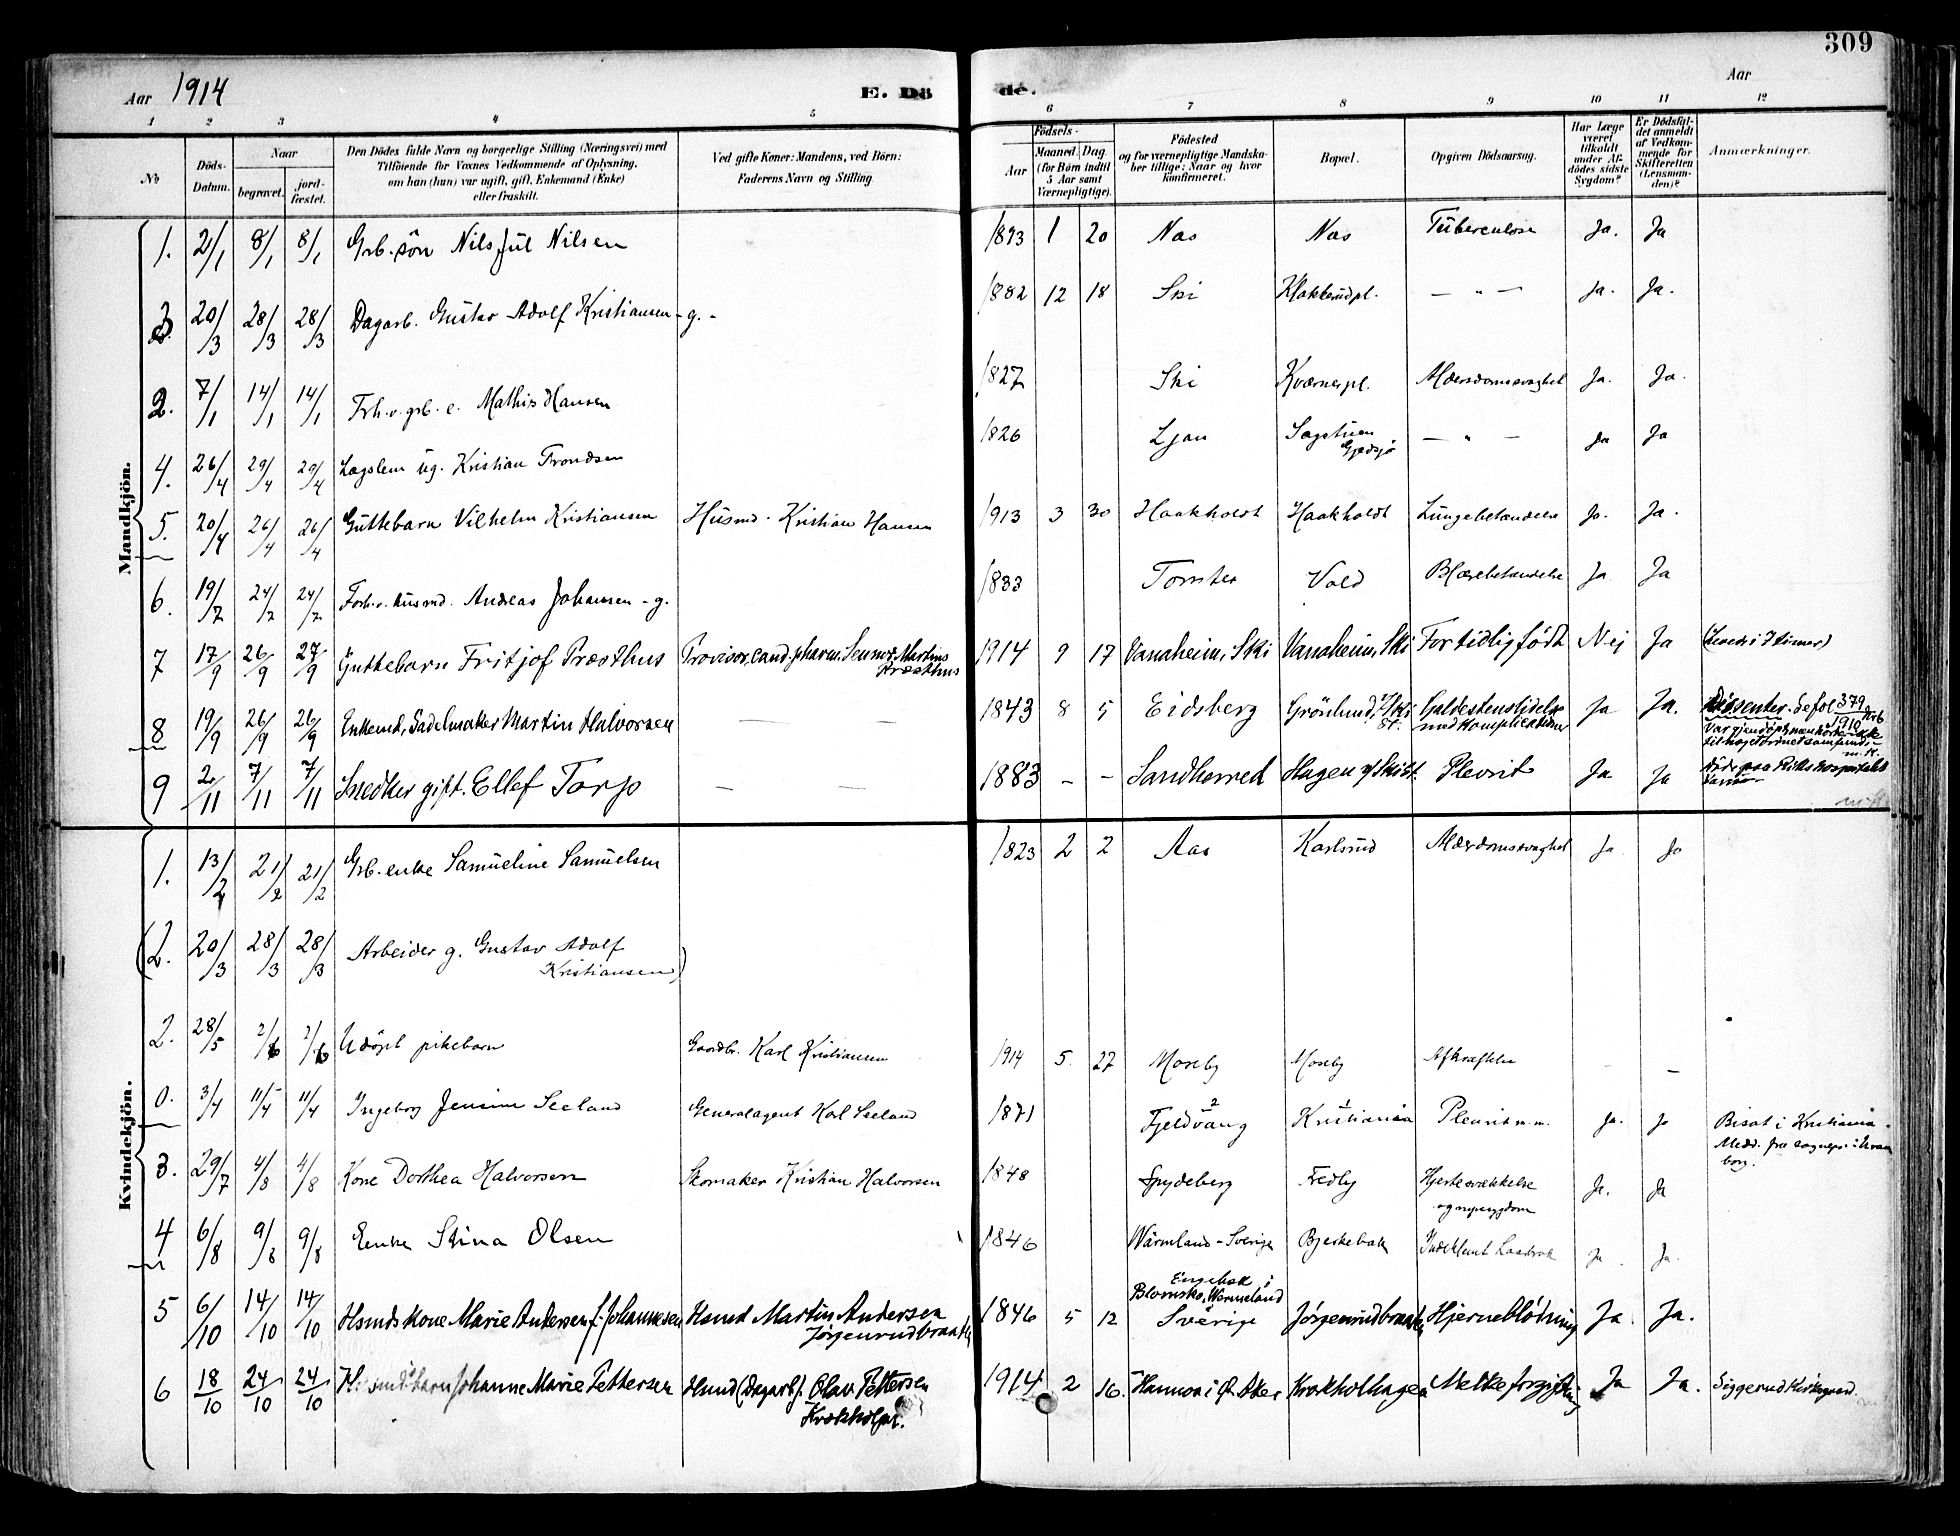 309
Aar 1914
E. Dö
de.
Aar
1 2 3 4 5 6 7 8 9 10 11 12
No
Döds-Datum.
Naar
begravet.
jord-fæstet.
Den Dödes fulde Navn og borgerlige Stilling (Næringsvei) med
Tilföiende for Voxnes Vedkommende af Oplysning,
om han (hun) var ugift, gift, Enkemand (Enke)
eller fraskilt.
Ved gifte Koner: Mandens, ved Börn:
Faderens Navn og Stilling
Födsels-
Aar
Maaned Dag
(for Börn indtil
5 Aar samt
Værnepligtige).
Födested
og for værnepligtige Mandska-
ber tillige: Naar og hvor
konfirmeret.
Bopæl.
Opgiven Dödsaarsag.
Har Læge
været
tilkaldt
under Af-
dödes sidste
Sygdom?
Er Dödsfal-
det anmeldt
af Vedkom-
mende for
Skifteretten
(Lensman-
den)?
Anmærkninger.
Mandkjön.
1. 2/1 8/1 8/1 Grb. sön Nils Jul Nilsen 1893 1 20 Nas Nas Tuberculose Ja. Ja
3. 20/3 28/3 28/3 Dagarb. Gustav Adolf Kristiansen - g. - 1882 12 18 Ski Klokkerudpl. — " — Ja. Ja.
2. 7/1 14/1 14/1 Frh. v. grb. e. Mathis Hansen 1827 Ski Kværnerpl. Alderdomssvaghet Ja. Ja.
4. 26/4 29/4 29/4 Lægslem ug. Kristian Trondsen 1826 Ljan Sagstuen Gjedsjø — " — Ja Ja
5. 20/4 26/4 26/4 Guttebarn Vilhelm Kristiansen Husmd. Kristian Hansen 1913 3 30 Haakholdt Haakholdt Lungebetændelse Ja. Ja.
6. 19/2 24/2 24/2 Forh. v. husmd. Andreas Johansen - g. 1833 Tomter Vold Blærebetændelse Ja Ja
7 17/9 26/9 27/9 Guttebarn Fritjof Præsthus Provisor, cand. pharm. Martins Præsthus 1914 9 17 Vanaheim, Ski Vanaheim, Ski For tidlig født Nej Ja (Levde i 7 timer)
8 19/9 26/9 26/9 Enkemd, Sadelmaker Martin Halvorsen — — 1843 8 5 Eidsberg Grönlund, v/Ski St. Galdestenslidelse med Komplikationer Ja Ja. Dissenter. Se fol 379 1910
9 2/11 7/11 7/11 Snedker gift. Ellef Torp — — 1883 - - Sandherred Hagen v/ Ski st. Plevrit Ja Ja Døde paa Rikshospitalet
Kvindekjön.
1. 13/2 21/2 21/2 Grb. enke Samueline Samuelsen 1823 2 2 Aas Karlsrud Alderdomssvaghet Ja Ja
(2. 20/3 28/3 28/3 Arbeider g. Gustav Adolf
Kristiansen)
2. 28/5 2/6 2/6 Udöpt pikebarn Gaardbr. Karl Kristiansen 1914 5. 27 Moseby Moseby Afkræftelse - -
0. 3/4 11/4 11/4 Ingeborg Jensine Seeland Generalagent Karl Seeland 1871 Fjeldvang 2 Kristiania 1 Plevrit m.m. Ja. Ja Bisat i Kristiania.
3. 29/7 4/8 4/8 Kone Dorthea Halvorsen Skomaker Kristian Halvorsen 1848 Spydeberg Fredly Hjertesvækkelse Ja. Ja
4 6/8 9/8 9/8 Enke Stina Olsen 1846 Wärmland - Sverige Bjerkebak Indeklemt Ja Ja.
5 6/10 14/10 14/10 Hsmdskone Marie Andersen f. Johannesen Hsmd Martin Andersen Jørgenrudbraaten 1846 5 12 Blomsko, Wermeland i Sverige Jørgenrudbraaten Hjerneblödning Ja. Ja.
6 18/10 24/10 24/10 Johanne Marie Pettersen Hsmd (Dagarb). Olav Pettersen Krokholpl. 1914 2 16. i Ø. Aker Krokholhagen Melkeforgiftning Ja Ja. Siggerud Kirkegaard.